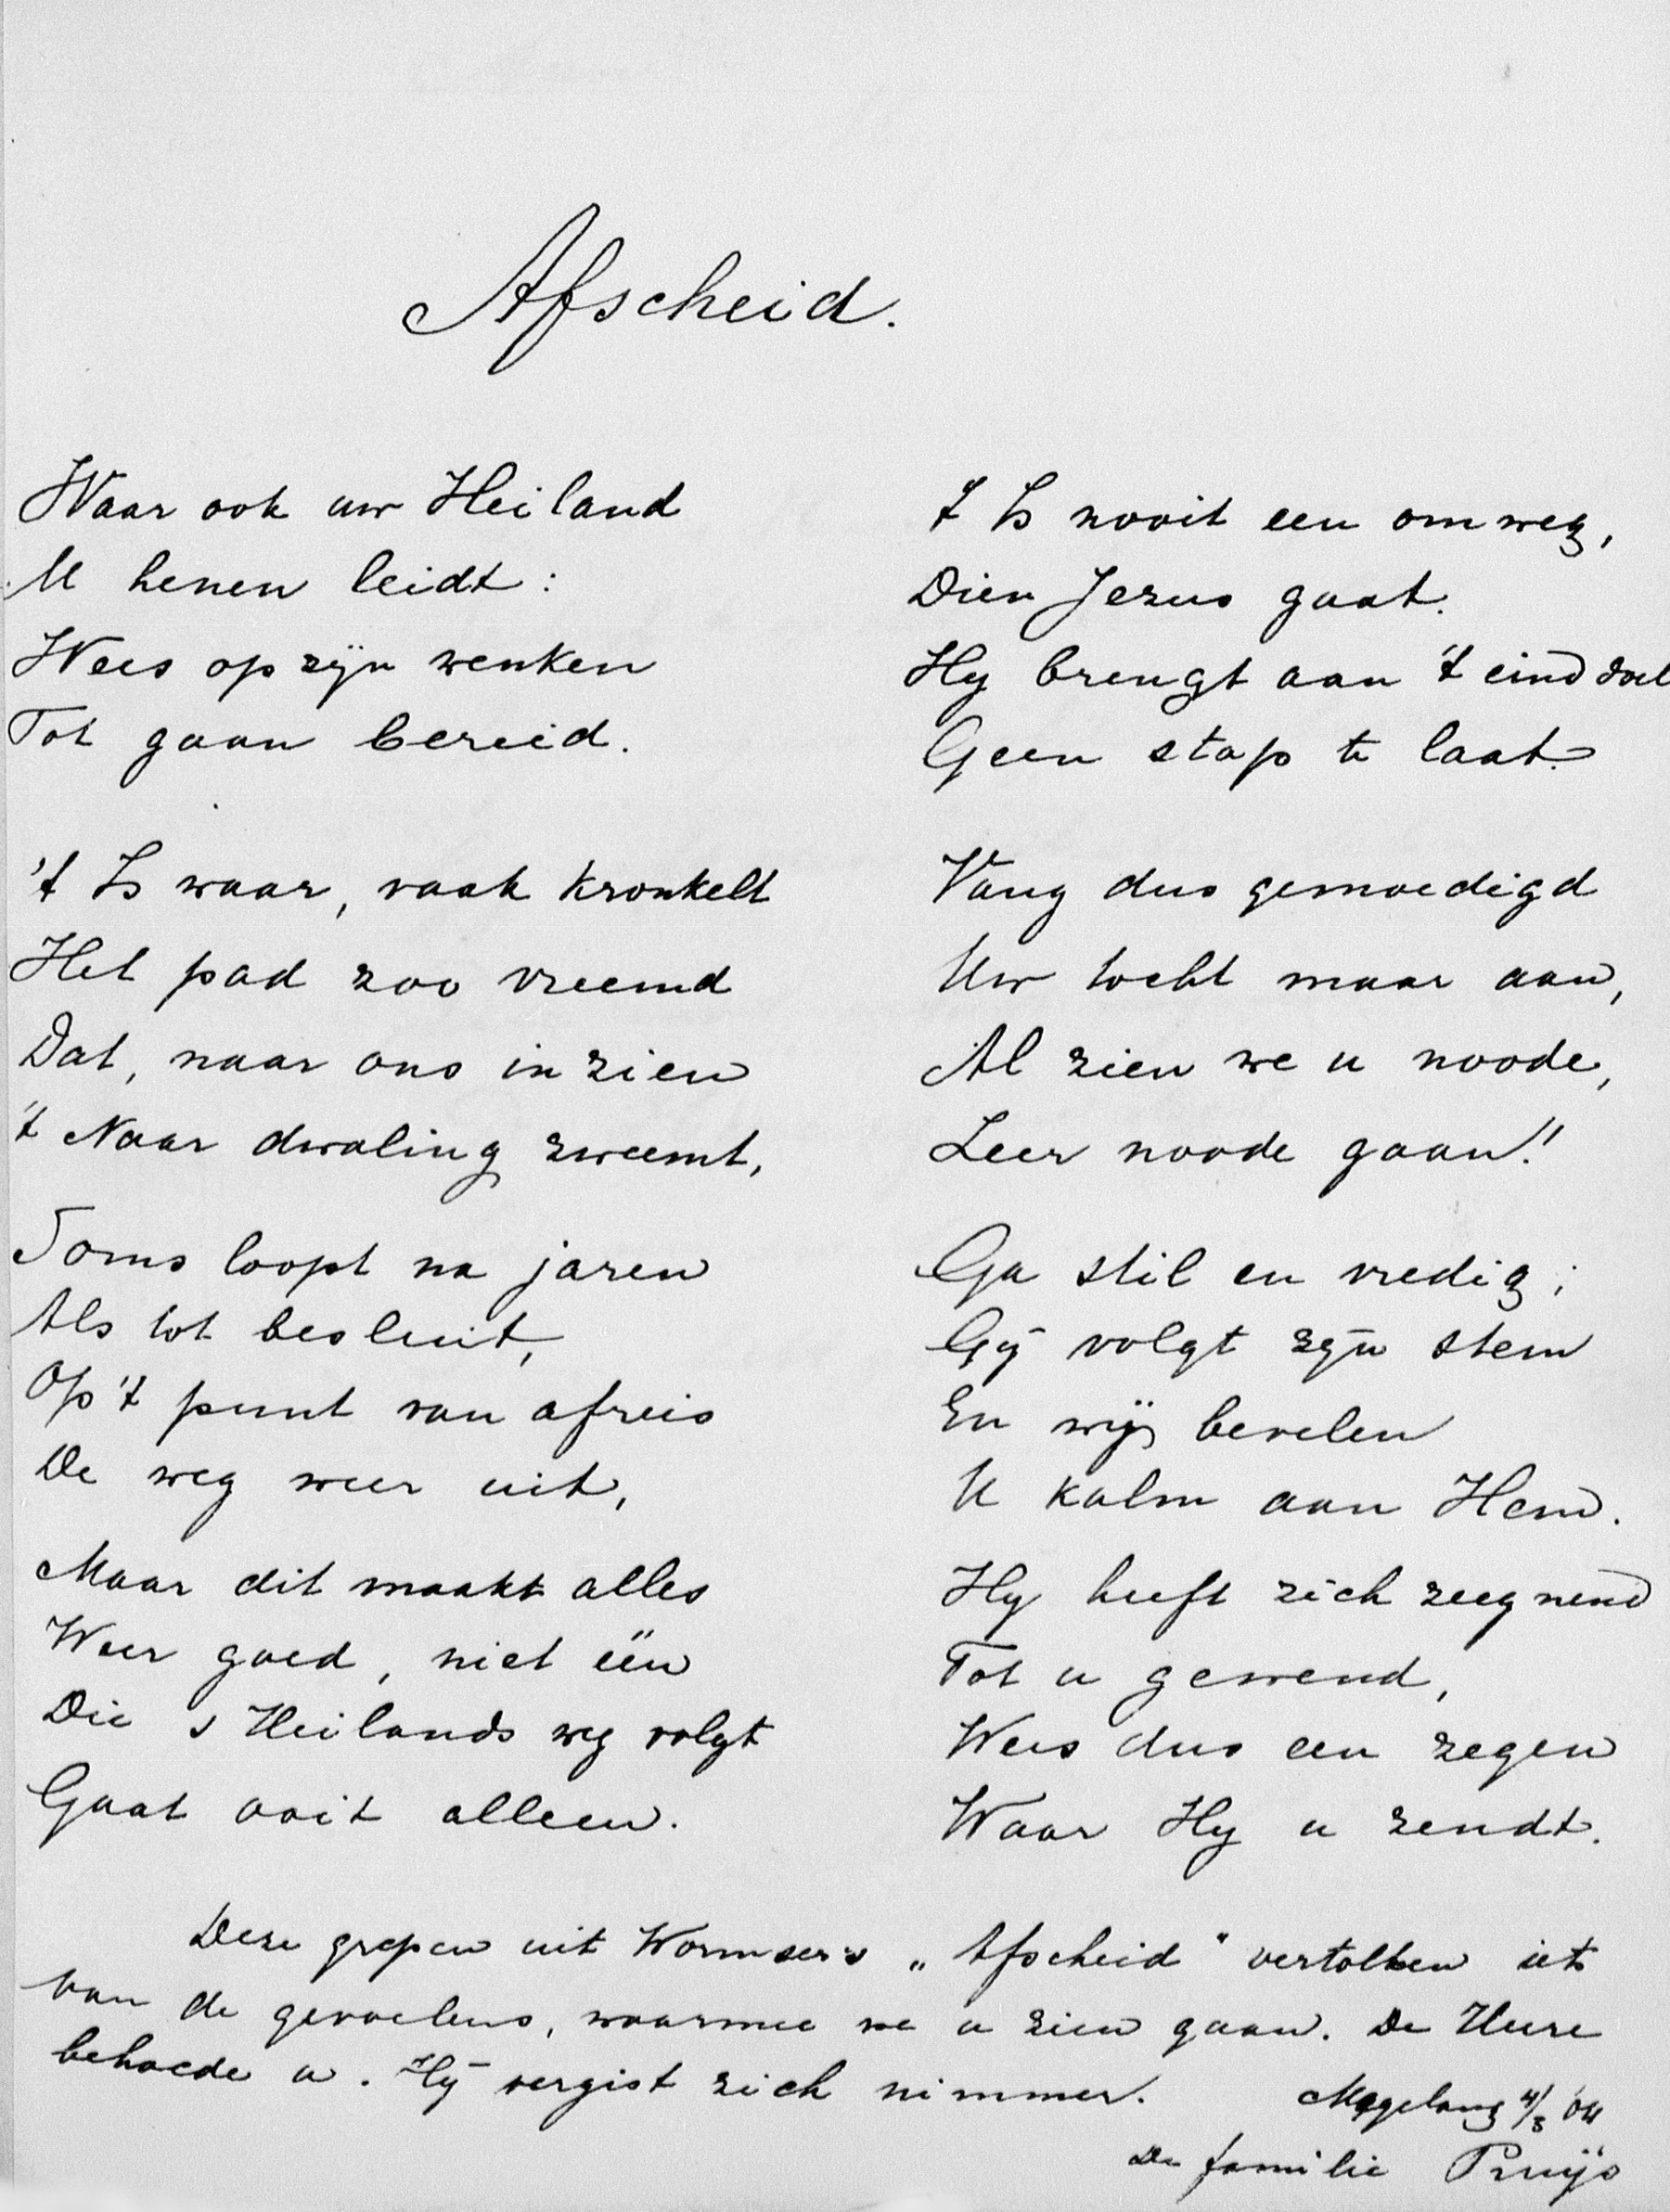 Afscheid.
Waar ook uw Heiland
U henen leidt:
Wees op zijn wenken
Tot gaan bereid.
't Is waar, vaak kronkelt
Het pad zoo vreemd
Dat, naar ons inzien
't Naar dwaling zweemt,
Soms loopt na jaren
Als tot besluit,
Op 't punt van afreis
De weg weer uit,
Maar dit maakt alles
Weer goed, niet één
Die s Heilands weg volgt
Gaat ooit alleen.
't Is nooit een omweg,
Dien Jezus gaat.
Hy brengt aan 't eind doel
Geen stap te laat.
Vang dus gemoedigd
Uw tocht maar aan,
Al zien we u noode,
Zeer noode gaan!
Ga stil en vredig;
Gij volgt zijn stem
En wij bevelen
U kalm aan Hem.
Hy heeft zich zeegnend
Tot u gewend,
Wees dus een zegen
Waar Hy u zendt.
Deze grepen uit Wormser's „Afscheid" vertolken iets
van de gevoelens, waarmee we u zien gaan. De Heere
behoede u. Hij vergist zich nimmer.
Magelang 4/3 '04
De familie Pruijs